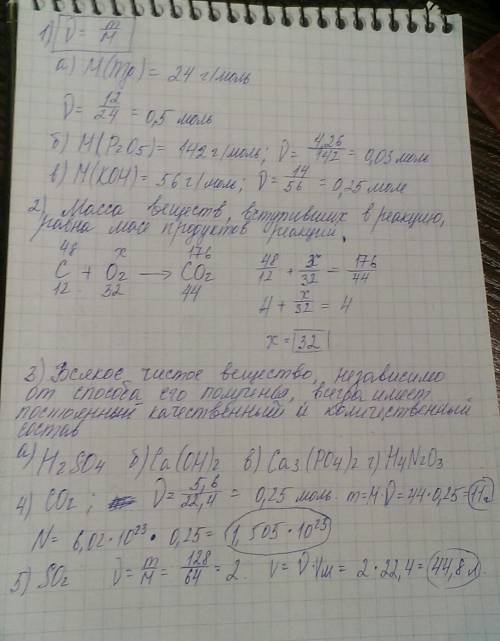 1) ν = m/M
а) M(Mg) = 24 г/моль
ν = 12/24 = 0,5 моль
б) M(P2O5) = 142 г/моль; ν = 4,26/142 = 0,03 моль
в) M(KOH) = 56 г/моль; ν = 14/56 = 0,25 моль
2) Масса веществ, вступивших в реакцию,
равна масе продуктов реакции.
48 x 176
C + O2 → CO2 48/12 + x/32 = 176/44
12 32 44
4 + x/32 = 4
x = 32
3) Всякое чистое вещество, независимо
от способа его получения, всегда имеет
постоянный качественный и количественный
состав
а) H2SO4 б) Ca(OH)2 в) Ca3(PO4)2 г) H4N2O3
4) CO2; ν = 5,6/22,4 = 0,25 моль. m = M·ν = 44·0,25 = 11 г
N = 6,02·10^23 · 0,25 = 1,505·10^23
5) SO2 ν = m/M = 128/64 = 2. V = ν·Vм = 2·22,4 = 44,8 л.